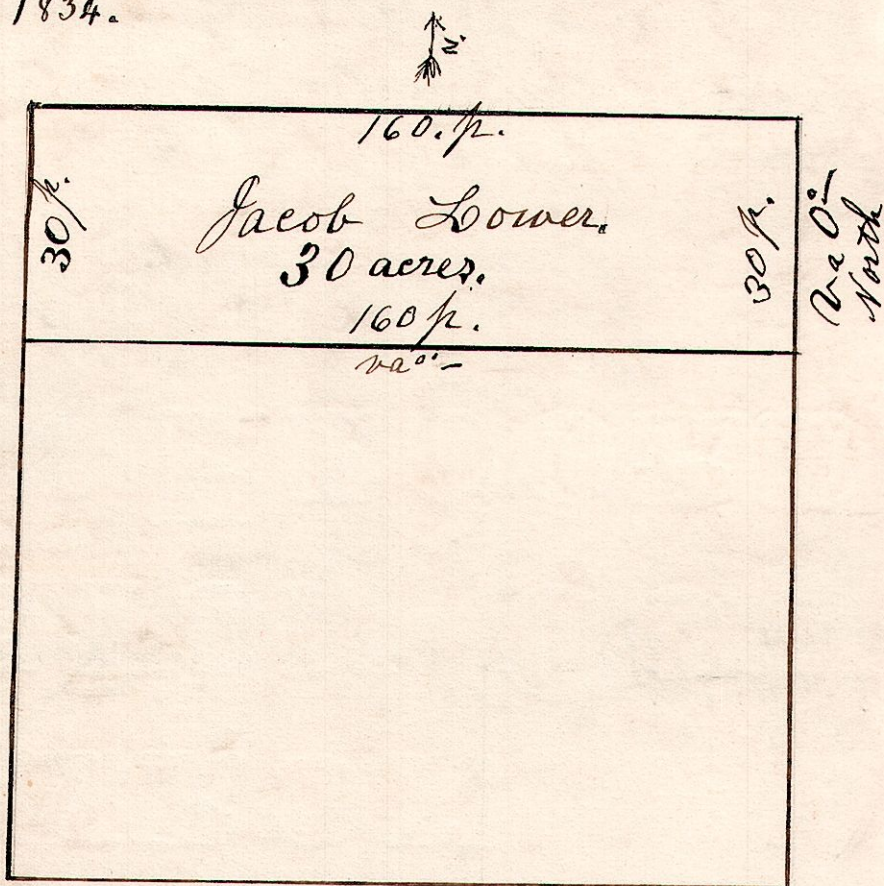 1834.
N.
160. p.
30 p.
Jacob Lower.
30 acres.
30 p.
160 p.
va 0°—
va 0°—
North